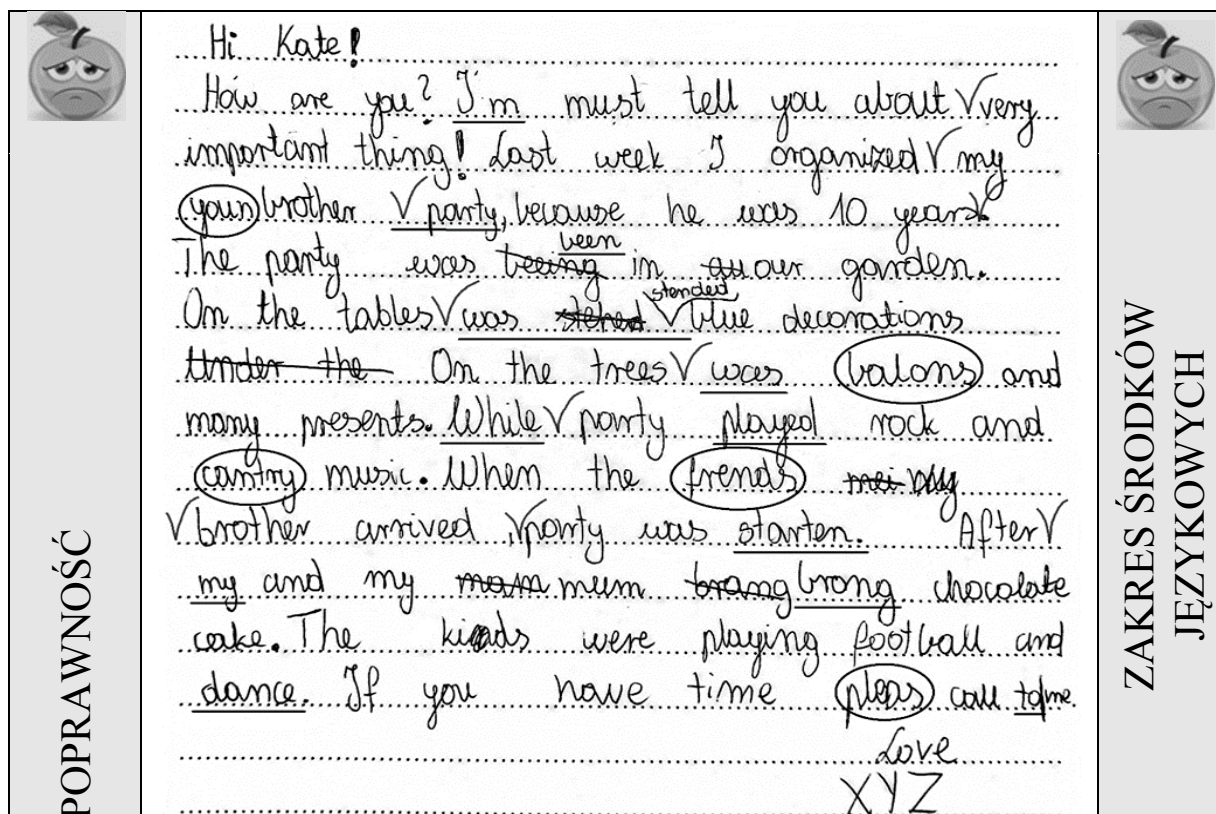 Hi Kate!
How are you? I'm must tell you about very
important thing! Last week I organized my
youn brother party, because he was 10 years
The party was been in our garden.
On the tables was stended blue decorations
Under the On the trees was balons and
many presents. While party played rock and
cantry music. When the frends
brother arrived, party was starten. After
my and my mum brong chocolate
cake. The kids were playing football and
dance. If you have time pleas call to me.
Love
XYZ
POPRAWNOŚĆ
ZAKRES ŚRODKÓW
JĘZYKOWYCH